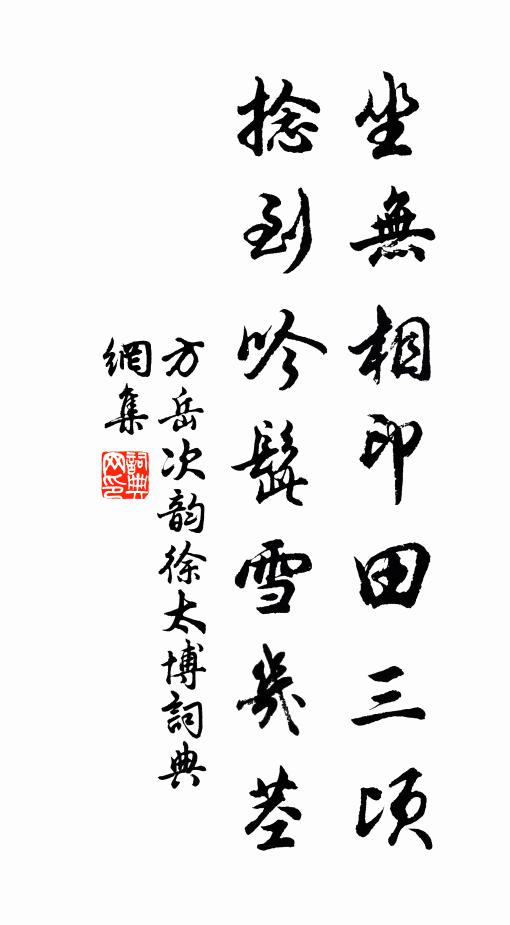 坐無相印田三頃
捻到吟髭雪幾莖
方岳次韵徐太博詞典
網集
詞典網印